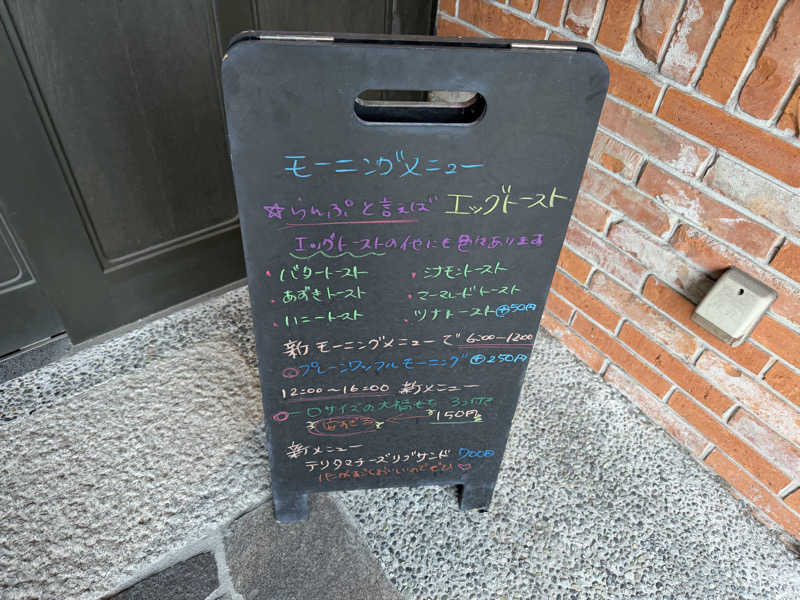 モーニングメニュー
☆らんぷと言えば エッグトースト
エッグトーストの他にも色々あります
・バタートースト ・シナモントースト
・あずきトースト ・マーマレードトースト
・ハニートースト ・ツナトースト⊕50円
新モーニングメニューで 6:00-12:00
◎プレーンワッフルモーニング⊕250円
12:00〜16:00 新メニュー
◎一口サイズの大福もち 3コで
150円
新メニュー
テリタマチーズリブサンド 700円